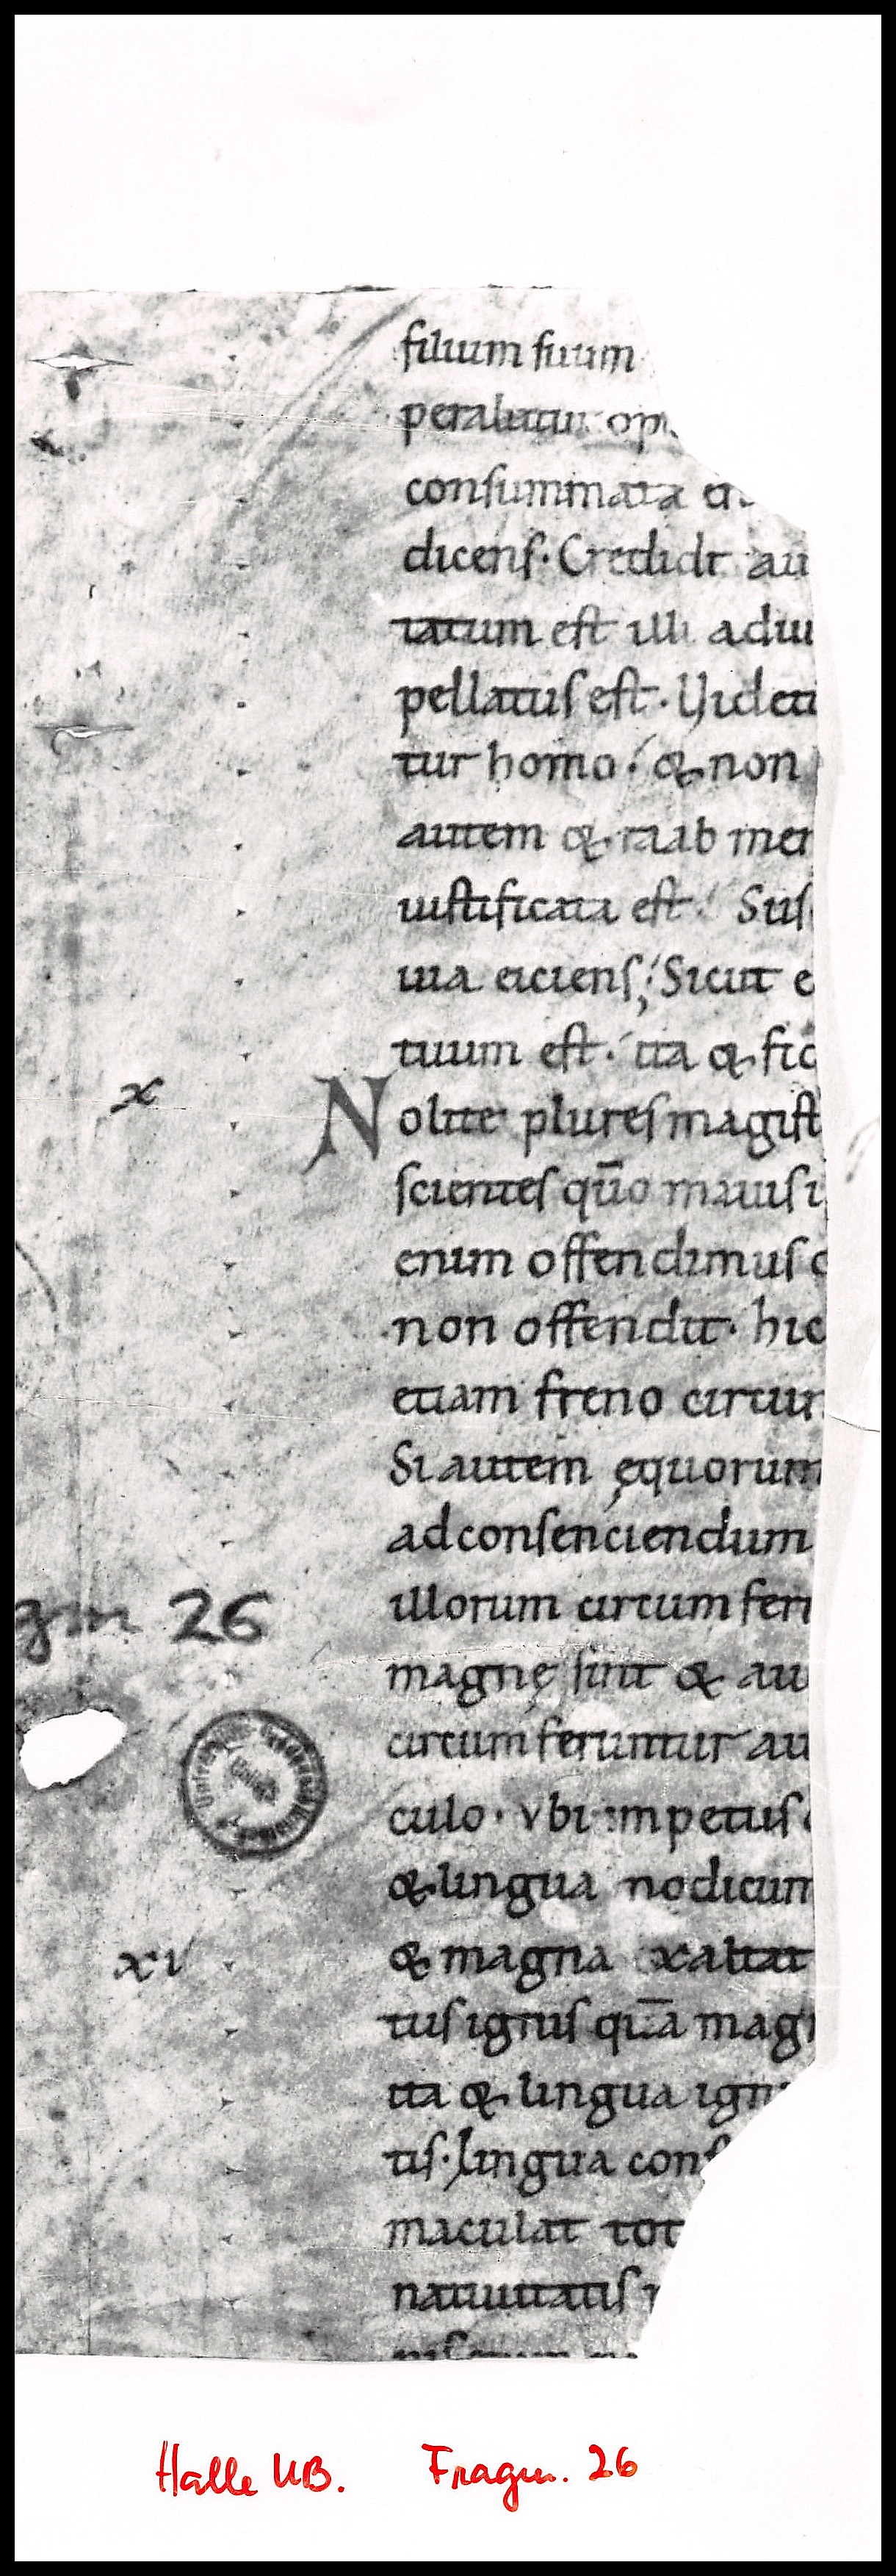 filium suum
perabatur op
consummata e
dicens. Credidit au
tatum est illi adiu
pellatus est. Videti
tur homo. & non
autem & raab mer
iustificata est. Sus
uia eiciens; Sicut e
tuum est. ita & fid
x
Nolite plures magist
scientes qūo maiusi
enim offendimus o
non offendit. hic
etiam freno circum
Si autem equorum
ad consenciendum
illorum circumferi
26
magnę sint & au
circumferuntur au
culo. vbi impetus
& lingua modicum
& magna xaltat
xi
tus ignis quā magn
ita & lingua igni
tis. lingua cons
maculat tot
natiuitatis
Halle UB. Fragm. 26